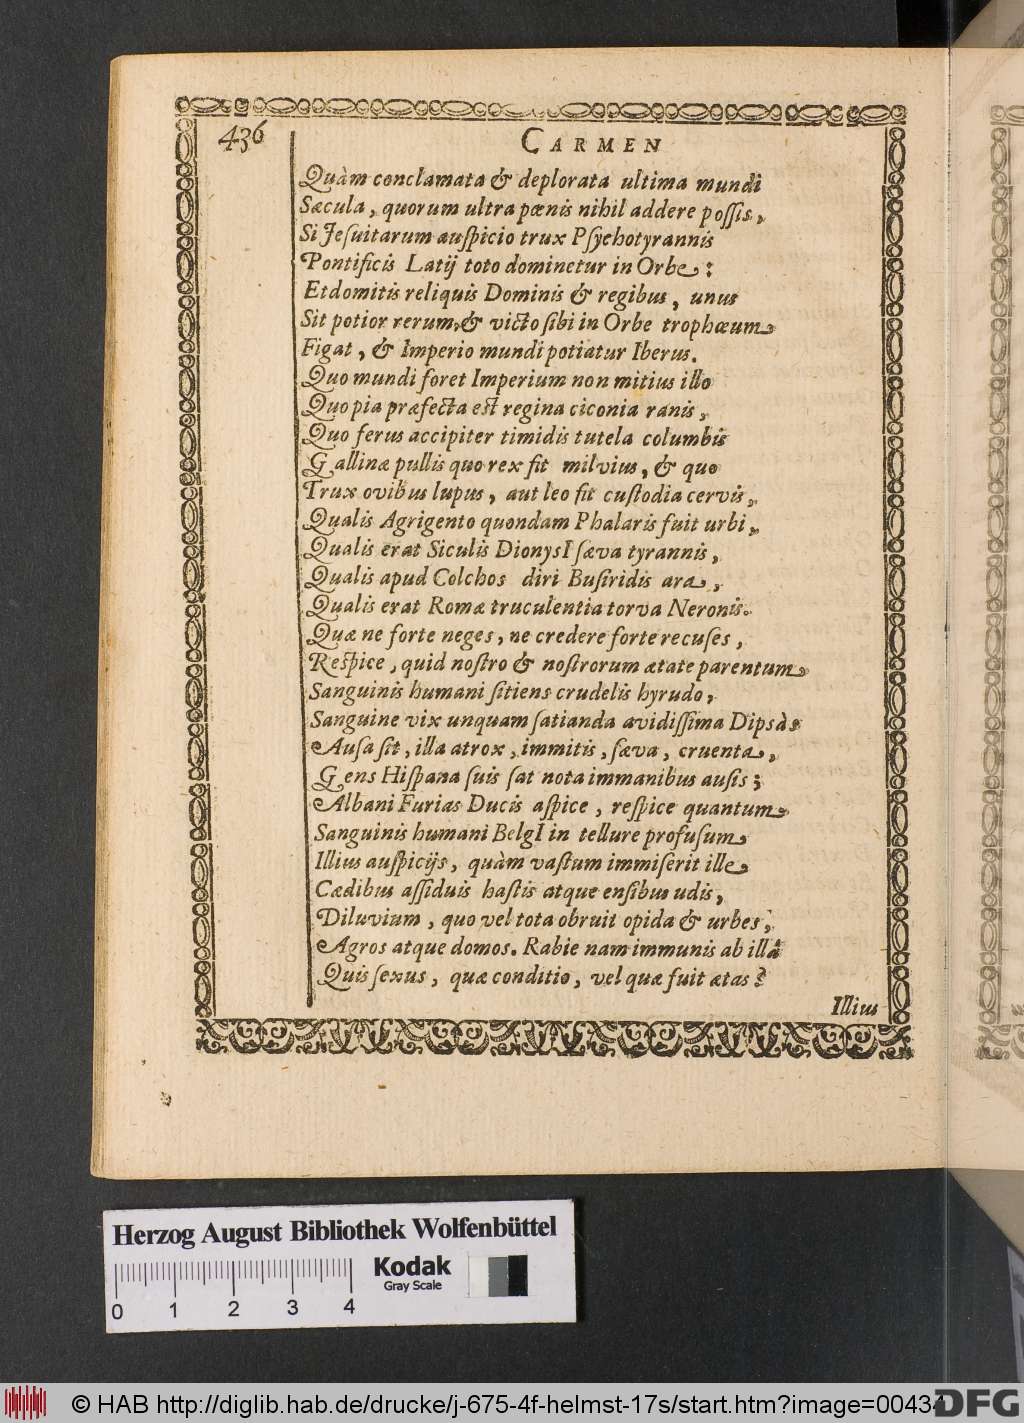 436
CARMEN
Quàm conclamata & deplorata ultima mundi
Sæcula, quorum ultra pœnis nihil addere possis,
Si Jesuitarum auspicio trux Psychotyrannis
Pontificis Latij toto dominetur in Orbe:
Et domitis reliquis Dominis & regibus, unus
Sit potior rerum, & victo sibi in Orbe trophæum
Figat, & Imperio mundi potiatur Iberus.
Quo mundi foret Imperium non mitius illo
Quo pia præfecta est regina ciconia ranis,
Quo ferus accipiter timidis tutela columbis
Gallinæ pullis quo rex fit milvius, & quo
Trux ovibus lupus, aut leo fit custodia cervis,
Qualis Agrigento quondam Phalaris fuit urbi,
Qualis erat Siculis DionysI sæva tyrannis,
Qualis apud Colchos diri Busiridis ara,
Qualis erat Romæ truculentia torva Neronis.
Quæ ne forte neges, ne credere forte recuses,
Respice, quid nostro & nostrorum ætate parentum
Sanguinis humani sitiens crudelis hyrudo,
Sanguine vix unquam satianda avidissima Dipsàs
Ausa sit, illa atrox, immitis, sæva, cruenta,
Gens Hispana suis sat nota immanibus ausis;
Albani Furias Ducis aspice, respice quantum
Sanguinis humani BelgI in tellure profusum
Illius auspicijs, quàm vastum immiserit ille
Cædibus assiduis hastis atque ensibus udis,
Diluvium, quo vel tota obruit opida & urbes,
Agros atque domos. Rabie nam immunis ab illâ
Quis sexus, quæ conditio, vel quæ fuit ætas?
Illius
Herzog August Bibliothek Wolfenbüttel
Kodak
Gray Scale
0 1 2 3 4
© HAB http://diglib.hab.de/drucke/j-675-4f-helmst-17s/start.htm?image=00434
DFG